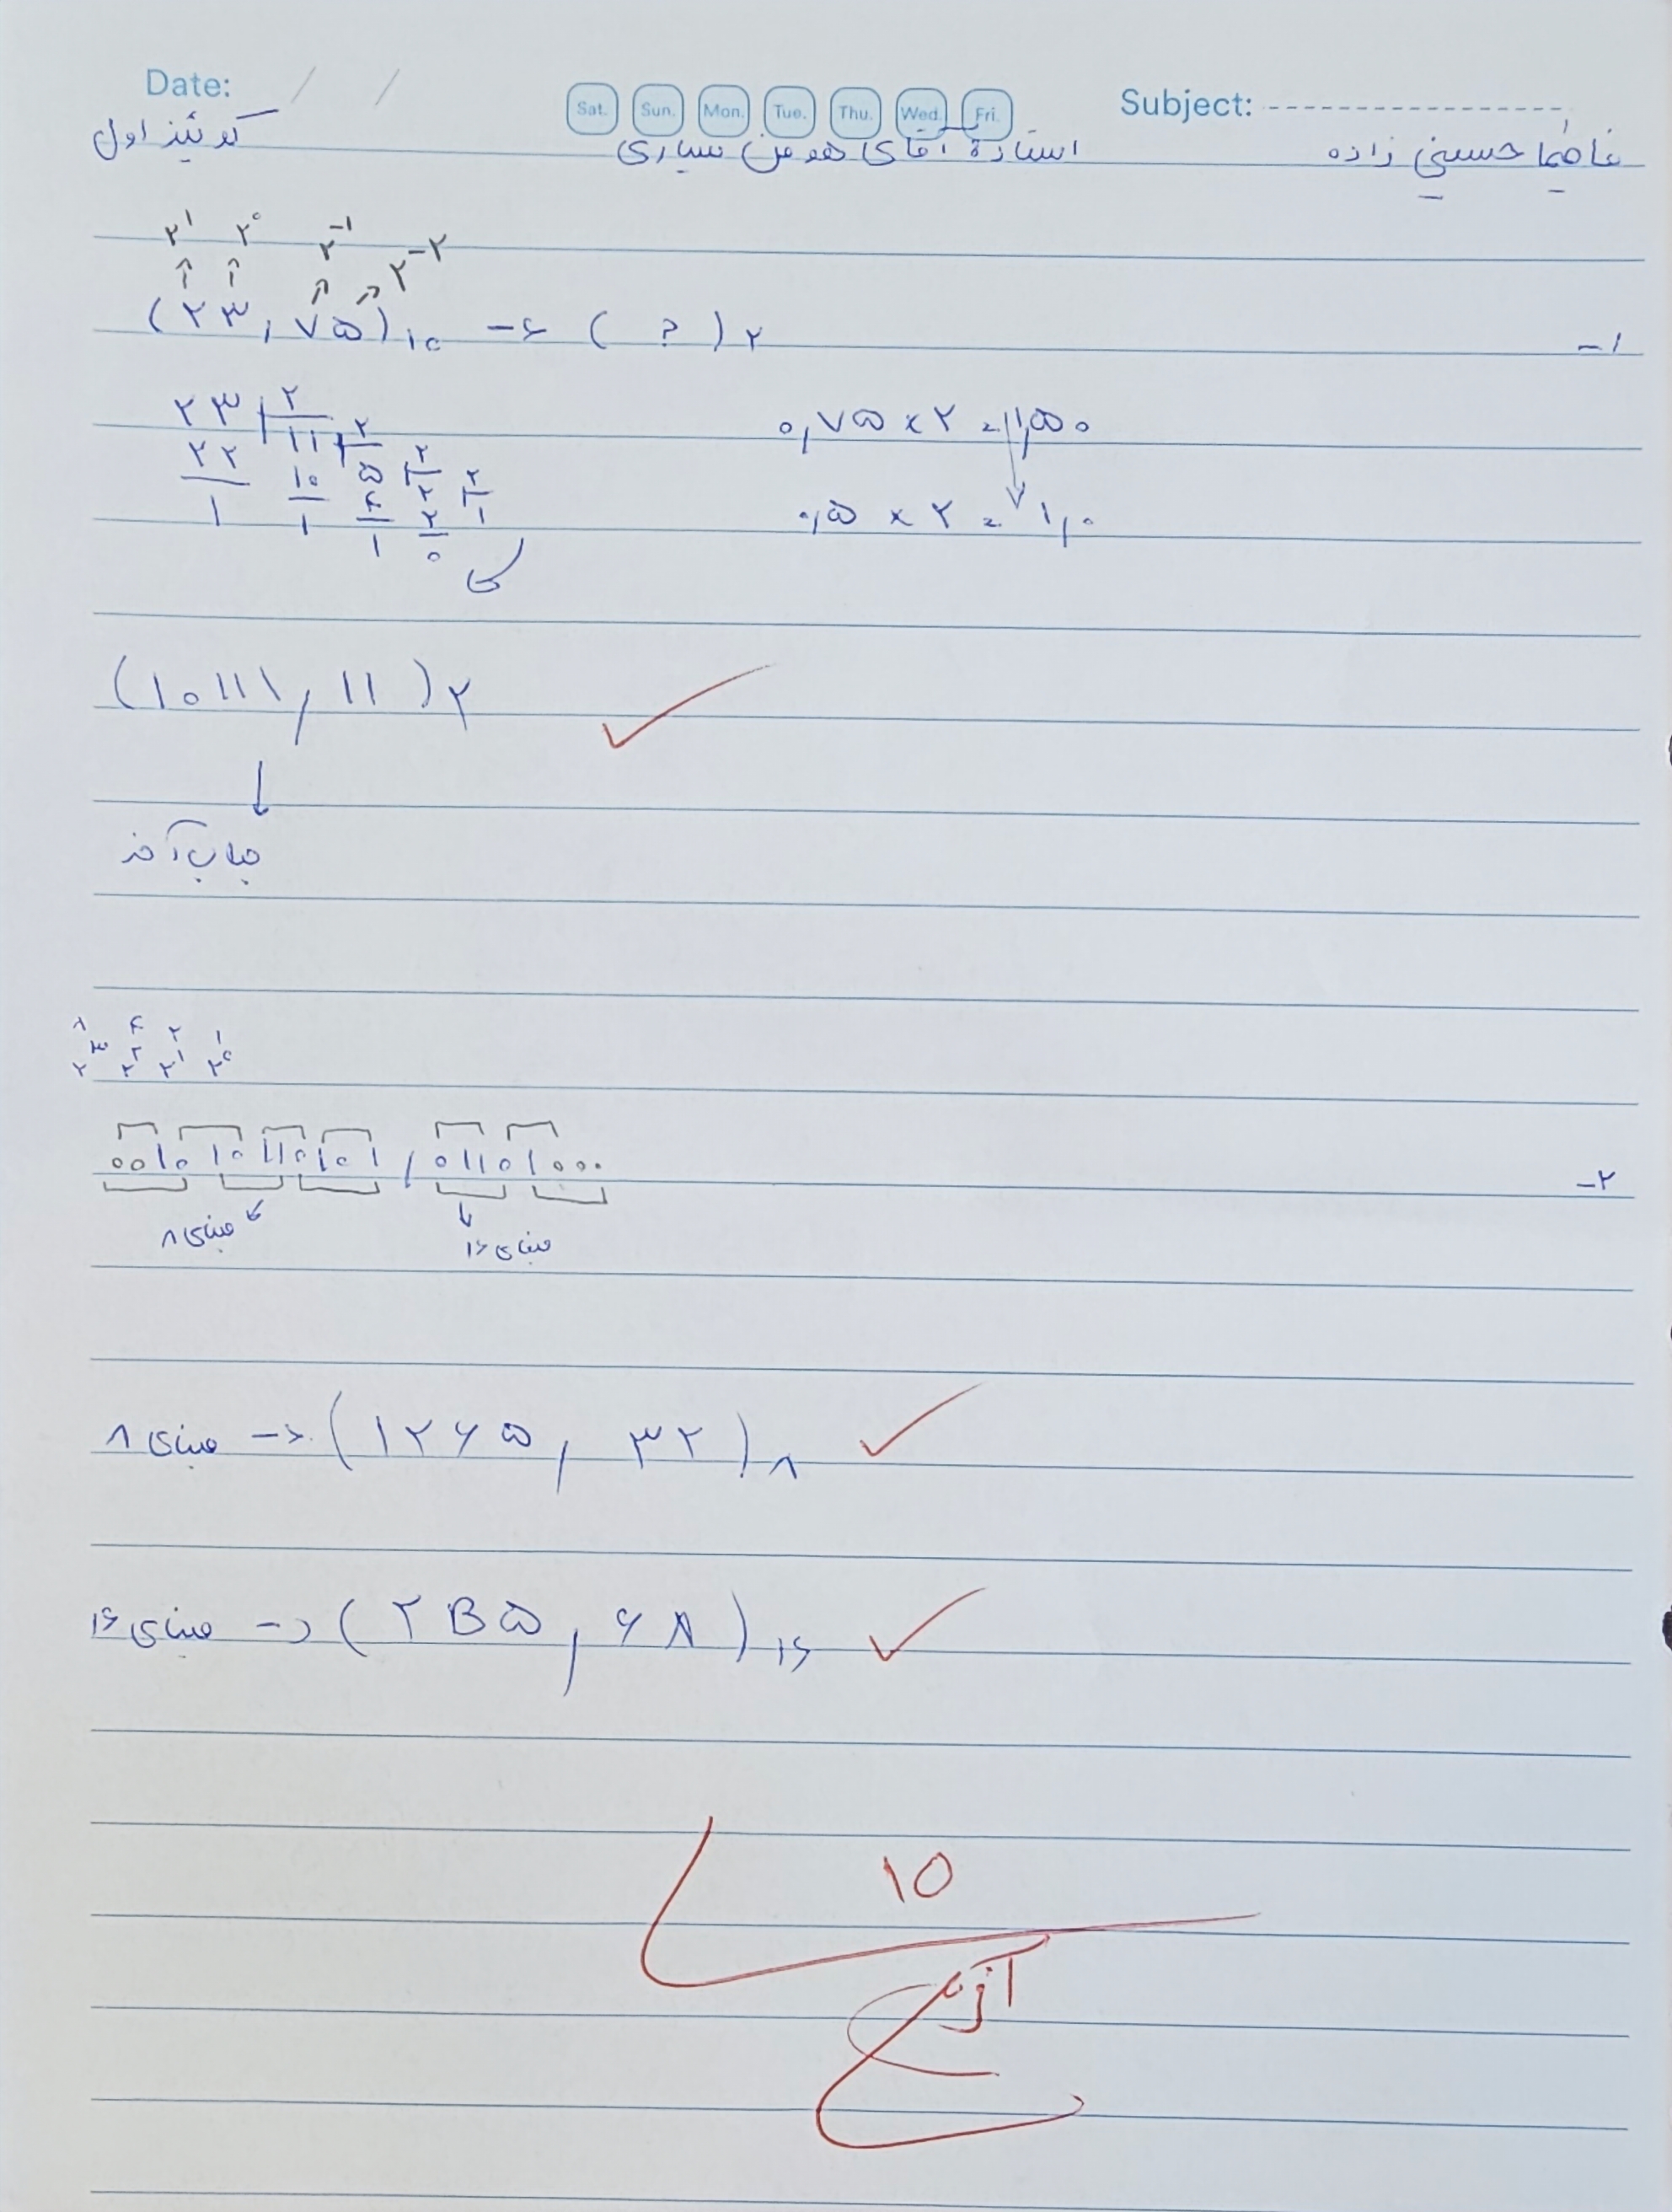 Date: / /
Sat. Sun. Mon. Tue. Thu. Wed. Fri.
Subject:
فاطیما حسینی زاده
استاد: آقای هومن سیاری
کوئیز اول
۲^۱ ۲^۰ ۲^-۱ ۲^-۲
۱- (۲۳,۷۵)۱۰ → ( ? )۲
۲۳ ۲ ۰,۷۵ × ۲ = ۱,۵۰
۲۲ ۱۱ ۲
۱ ۱۰ ۵ ۲ ۲
۱ ۴ ۲ ۱ ۰,۵ × ۲ = ۱,۰
۱ ۲
۰
(۱۰۱۱۱,۱۱)۲
↓
جاب آخر
۸ ۴ ۲ ۱
۲^۳ ۲^۲ ۲^۱ ۲^۰
۲- ۰۰۱۰۱۰۱۱۰۱۰۱,۰۱۱۰۱۰۰۰
مبنای ۸ مبنای ۱۶
مبنای ۸ → (۱۲۶۵,۳۲)۸
مبنای ۱۶ → (۲B۵,۶۸)۱۶
۱۰